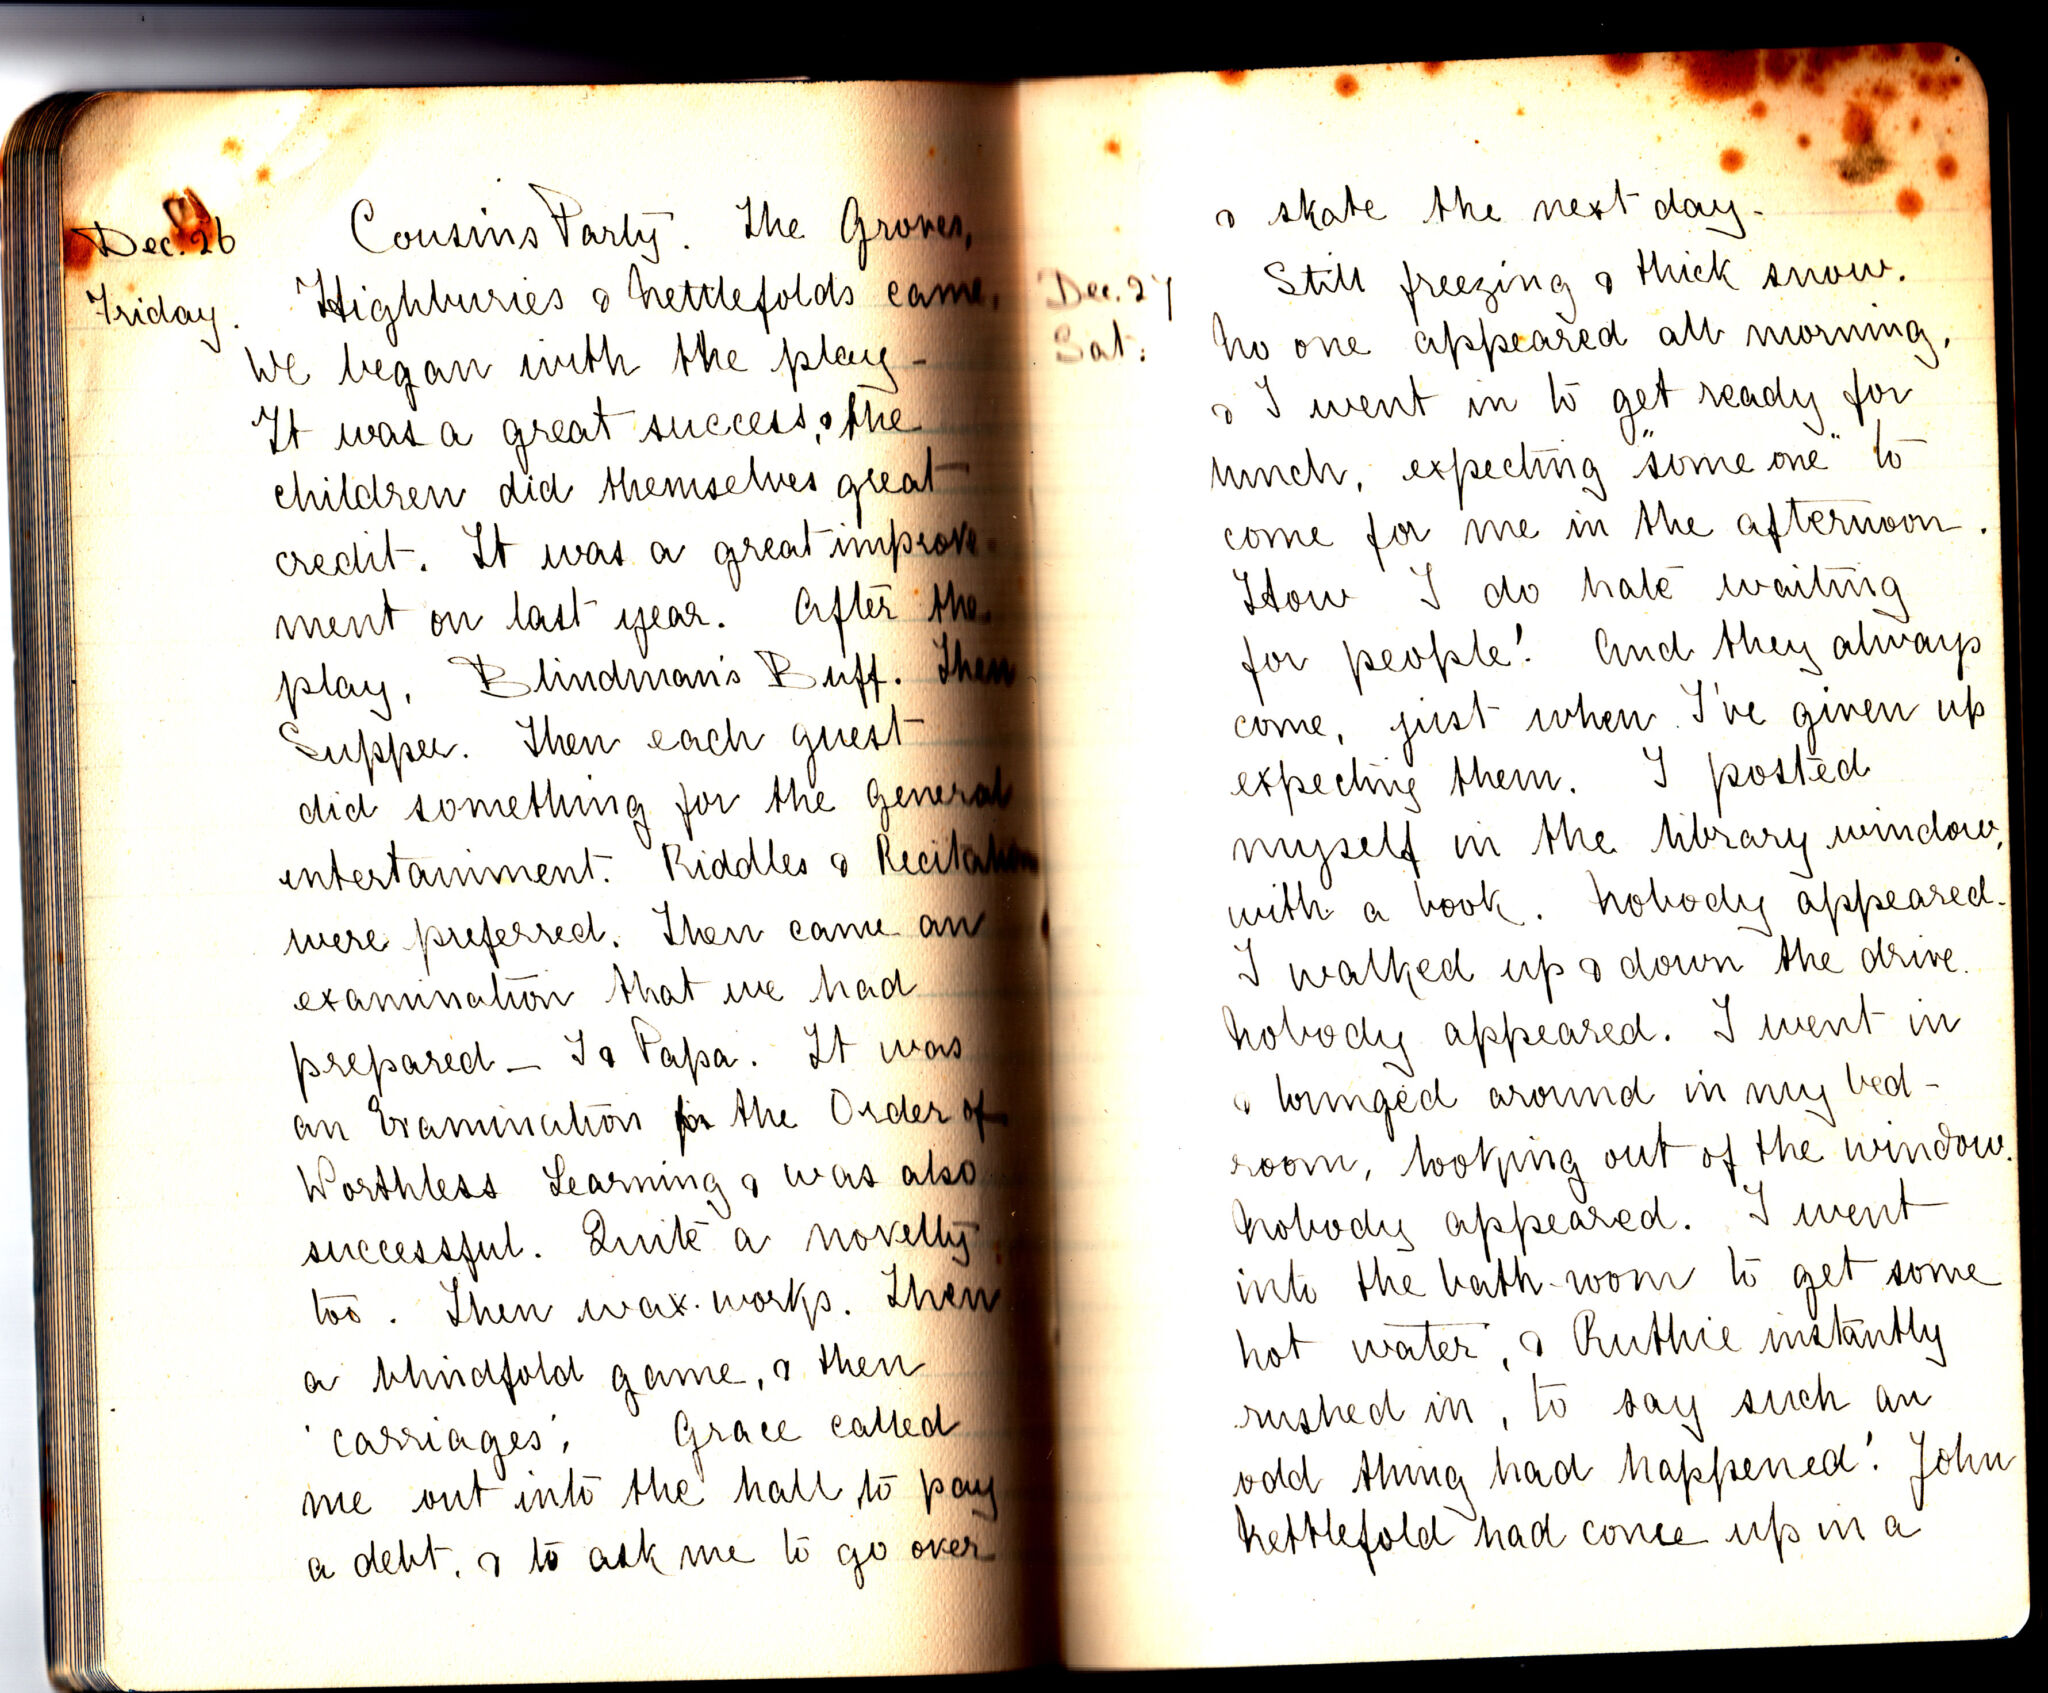 Dec. 26 Cousins Party. The Groves,
Friday. Highburies & Nettlefolds came.
We began with the play -
It was a great success, & the
children did themselves great
credit. It was a great improve-
ment on last year. After the
play, Blindman's Buff. Then
Supper. Then each guest
did something for the general
entertainment. Riddles & Recitation
were preferred. Then came an
examination that we had
prepared - I & Papa. It was
an Examination for the Order of
Worthless Learning & was also
successful. Quite a novelty
too. Then wax-works. Then
a blindfold game, & then
'carriages'. Grace called
me out into the hall to pay
a debt, & to ask me to go over
& skate the next day -
Dec. 27 Still freezing & thick snow.
Sat. No one appeared all morning,
& I went in to get ready for
lunch, expecting "some one" to
come for me in the afternoon.
How I do hate waiting
for people! And they always
come, just when I've given up
expecting them. I posted
myself in the library window,
with a book. Nobody appeared.
I walked up & down the drive.
Nobody appeared. I went in
& lounged around in my bed-
room, looking out of the window.
Nobody appeared. I went
into the bath-room to get some
hot water, & Ruthie instantly
rushed in, to say such an
odd thing had happened! John
Nettlefold had come up in a